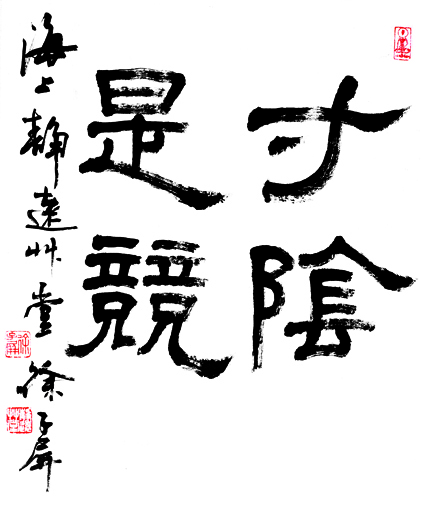 寸陰
是競
海上靜遠艸堂徐子屏